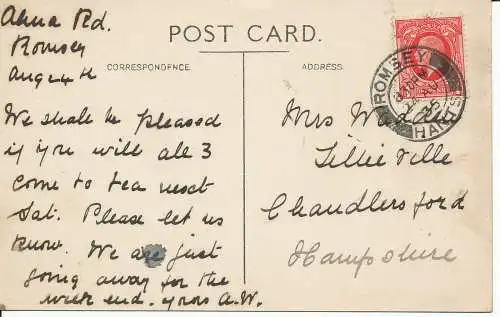 Alma Rd.
Romsey
Aug 4th
POST CARD.
CORRESPONDENCE.
ADDRESS.
We shall be pleased
if you will all 3
come to tea next
Sat. Please let us
know. We are just
going away for the
week end. yours A.W.
Mrs
Lillieville
Chandlersford
Hampshire
ROMSEY
HANTS